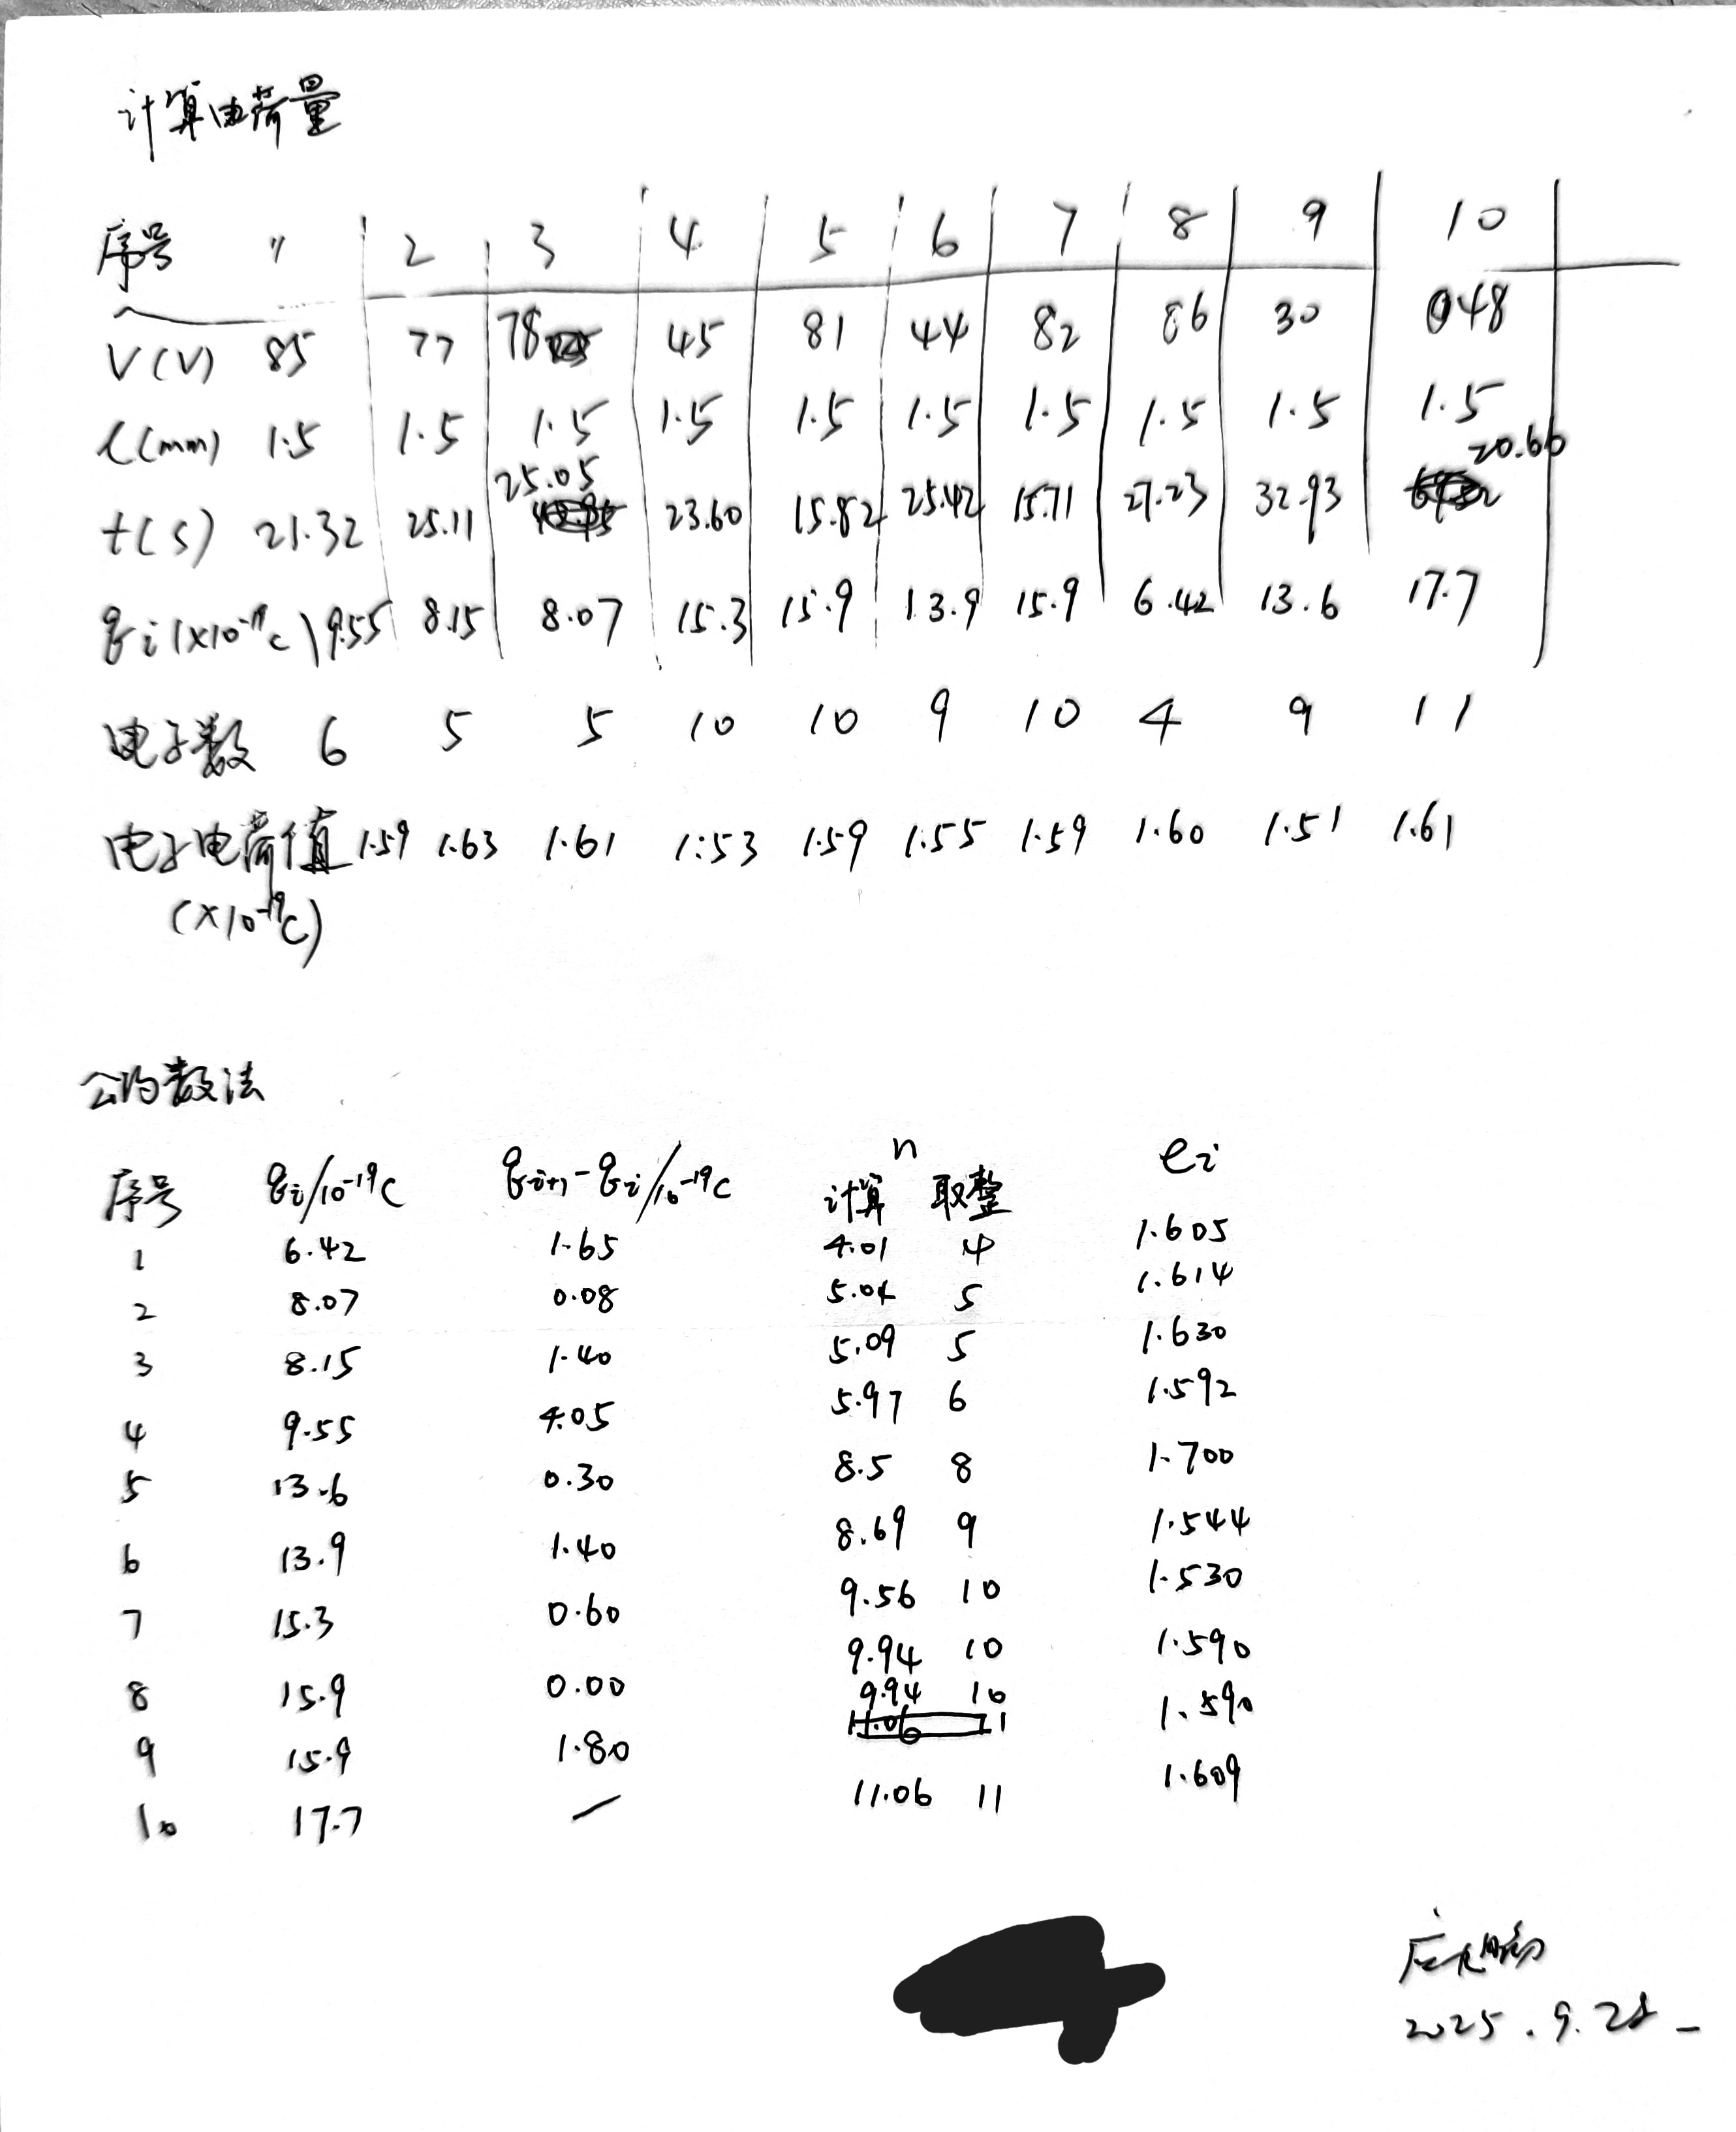 计算电荷量
序号 1 2 3 4 5 6 7 8 9 10
V(V) 85 77 78 45 81 44 82 86 30 48
l(mm) 1.5 1.5 1.5 1.5 1.5 1.5 1.5 1.5 1.5 1.5
t(s) 21.32 25.11 25.05 23.60 15.82 25.42 15.71 27.23 32.93 20.66
qi(×10⁻¹⁹C) 9.55 8.15 8.07 15.3 15.9 13.9 15.9 6.42 13.6 17.7
电子数 6 5 5 10 10 9 10 4 9 11
电子电荷值 1.59 1.63 1.61 1.53 1.59 1.55 1.59 1.60 1.51 1.61
(×10⁻¹⁹C)
公约数法
n
序号 qi/10⁻¹⁹C qi+1-qi/10⁻¹⁹C 计算 取整 ei
1 6.42 1.65 4.01 4 1.605
2 8.07 0.08 5.04 5 1.614
3 8.15 1.40 5.09 5 1.630
4 9.55 4.05 5.97 6 1.592
5 13.6 0.30 8.5 8 1.700
6 13.9 1.40 8.69 9 1.544
7 15.3 0.60 9.56 10 1.530
8 15.9 0.00 9.94 10 1.590
9 15.9 1.80 9.94 10 1.590
10 17.7 — 11.06 11 1.609
2025.9.28